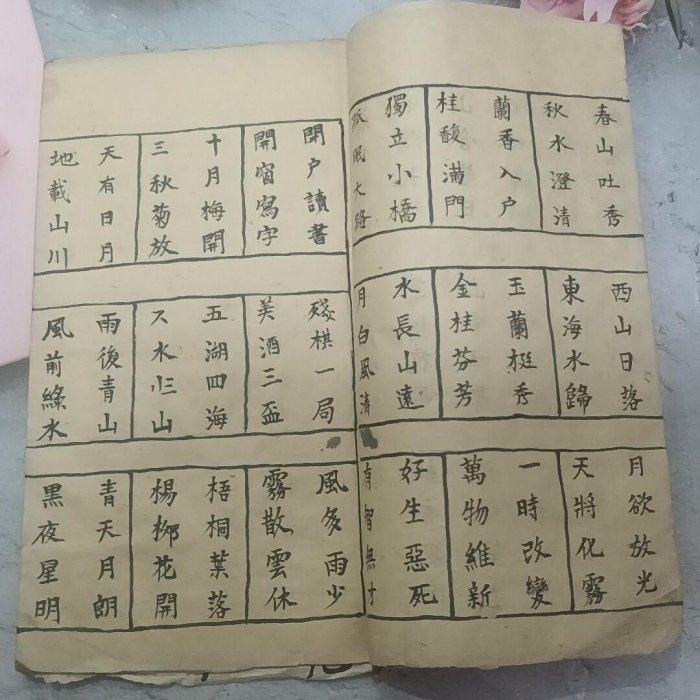 春山吐秀
秋水澄清
蘭香入户
桂馥滿門
獨立小橋
孤眠大路
西山日落
東海水歸
玉蘭挺秀
金桂芬芳
水長山遠
月白風清
月欲放光
天將化霧
一時改變
萬物維新
好生惡死
有智無才
開户讀書
開窗寫字
十月梅開
三秋菊放
天有日月
地載山川
殘棋一局
美酒三盃
五湖四海
水山
雨後青山
風前綠水
風多雨少
霧散雲休
梧桐葉落
楊柳花開
青天月朗
黑夜星明